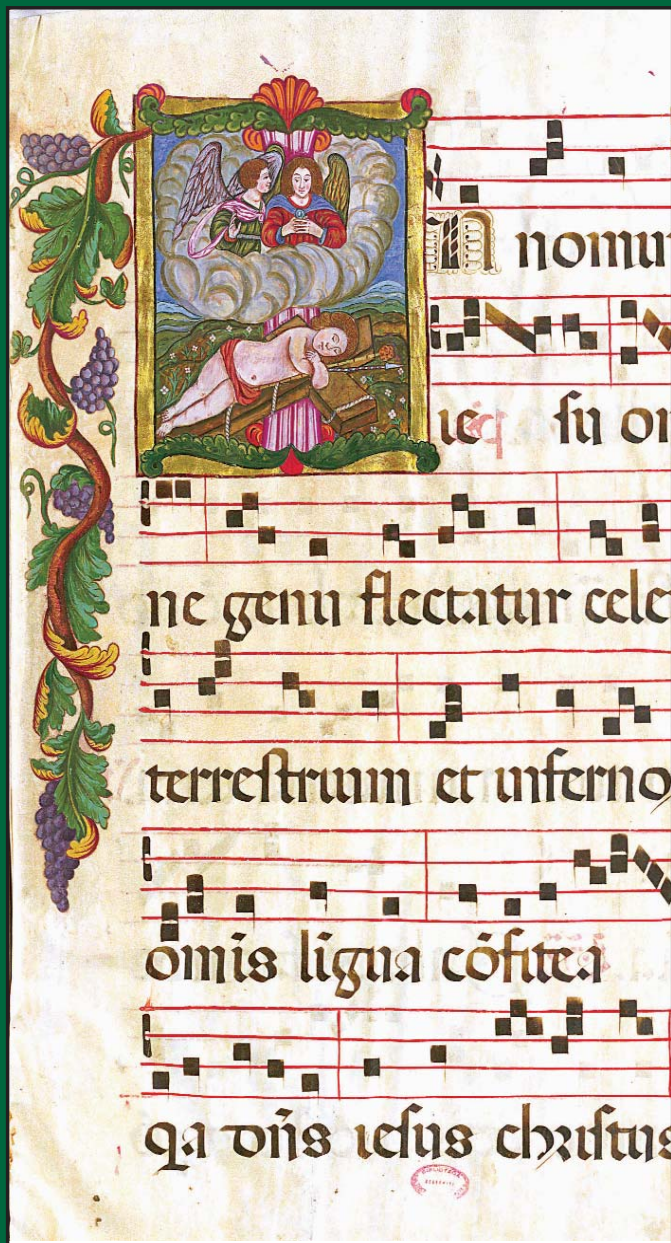 In nomi
ie su o
ne genu flectatur cele
terrestrium et inferno
omis ligua cõfitea
qa dñs iesus christus
BIBLIOTECA